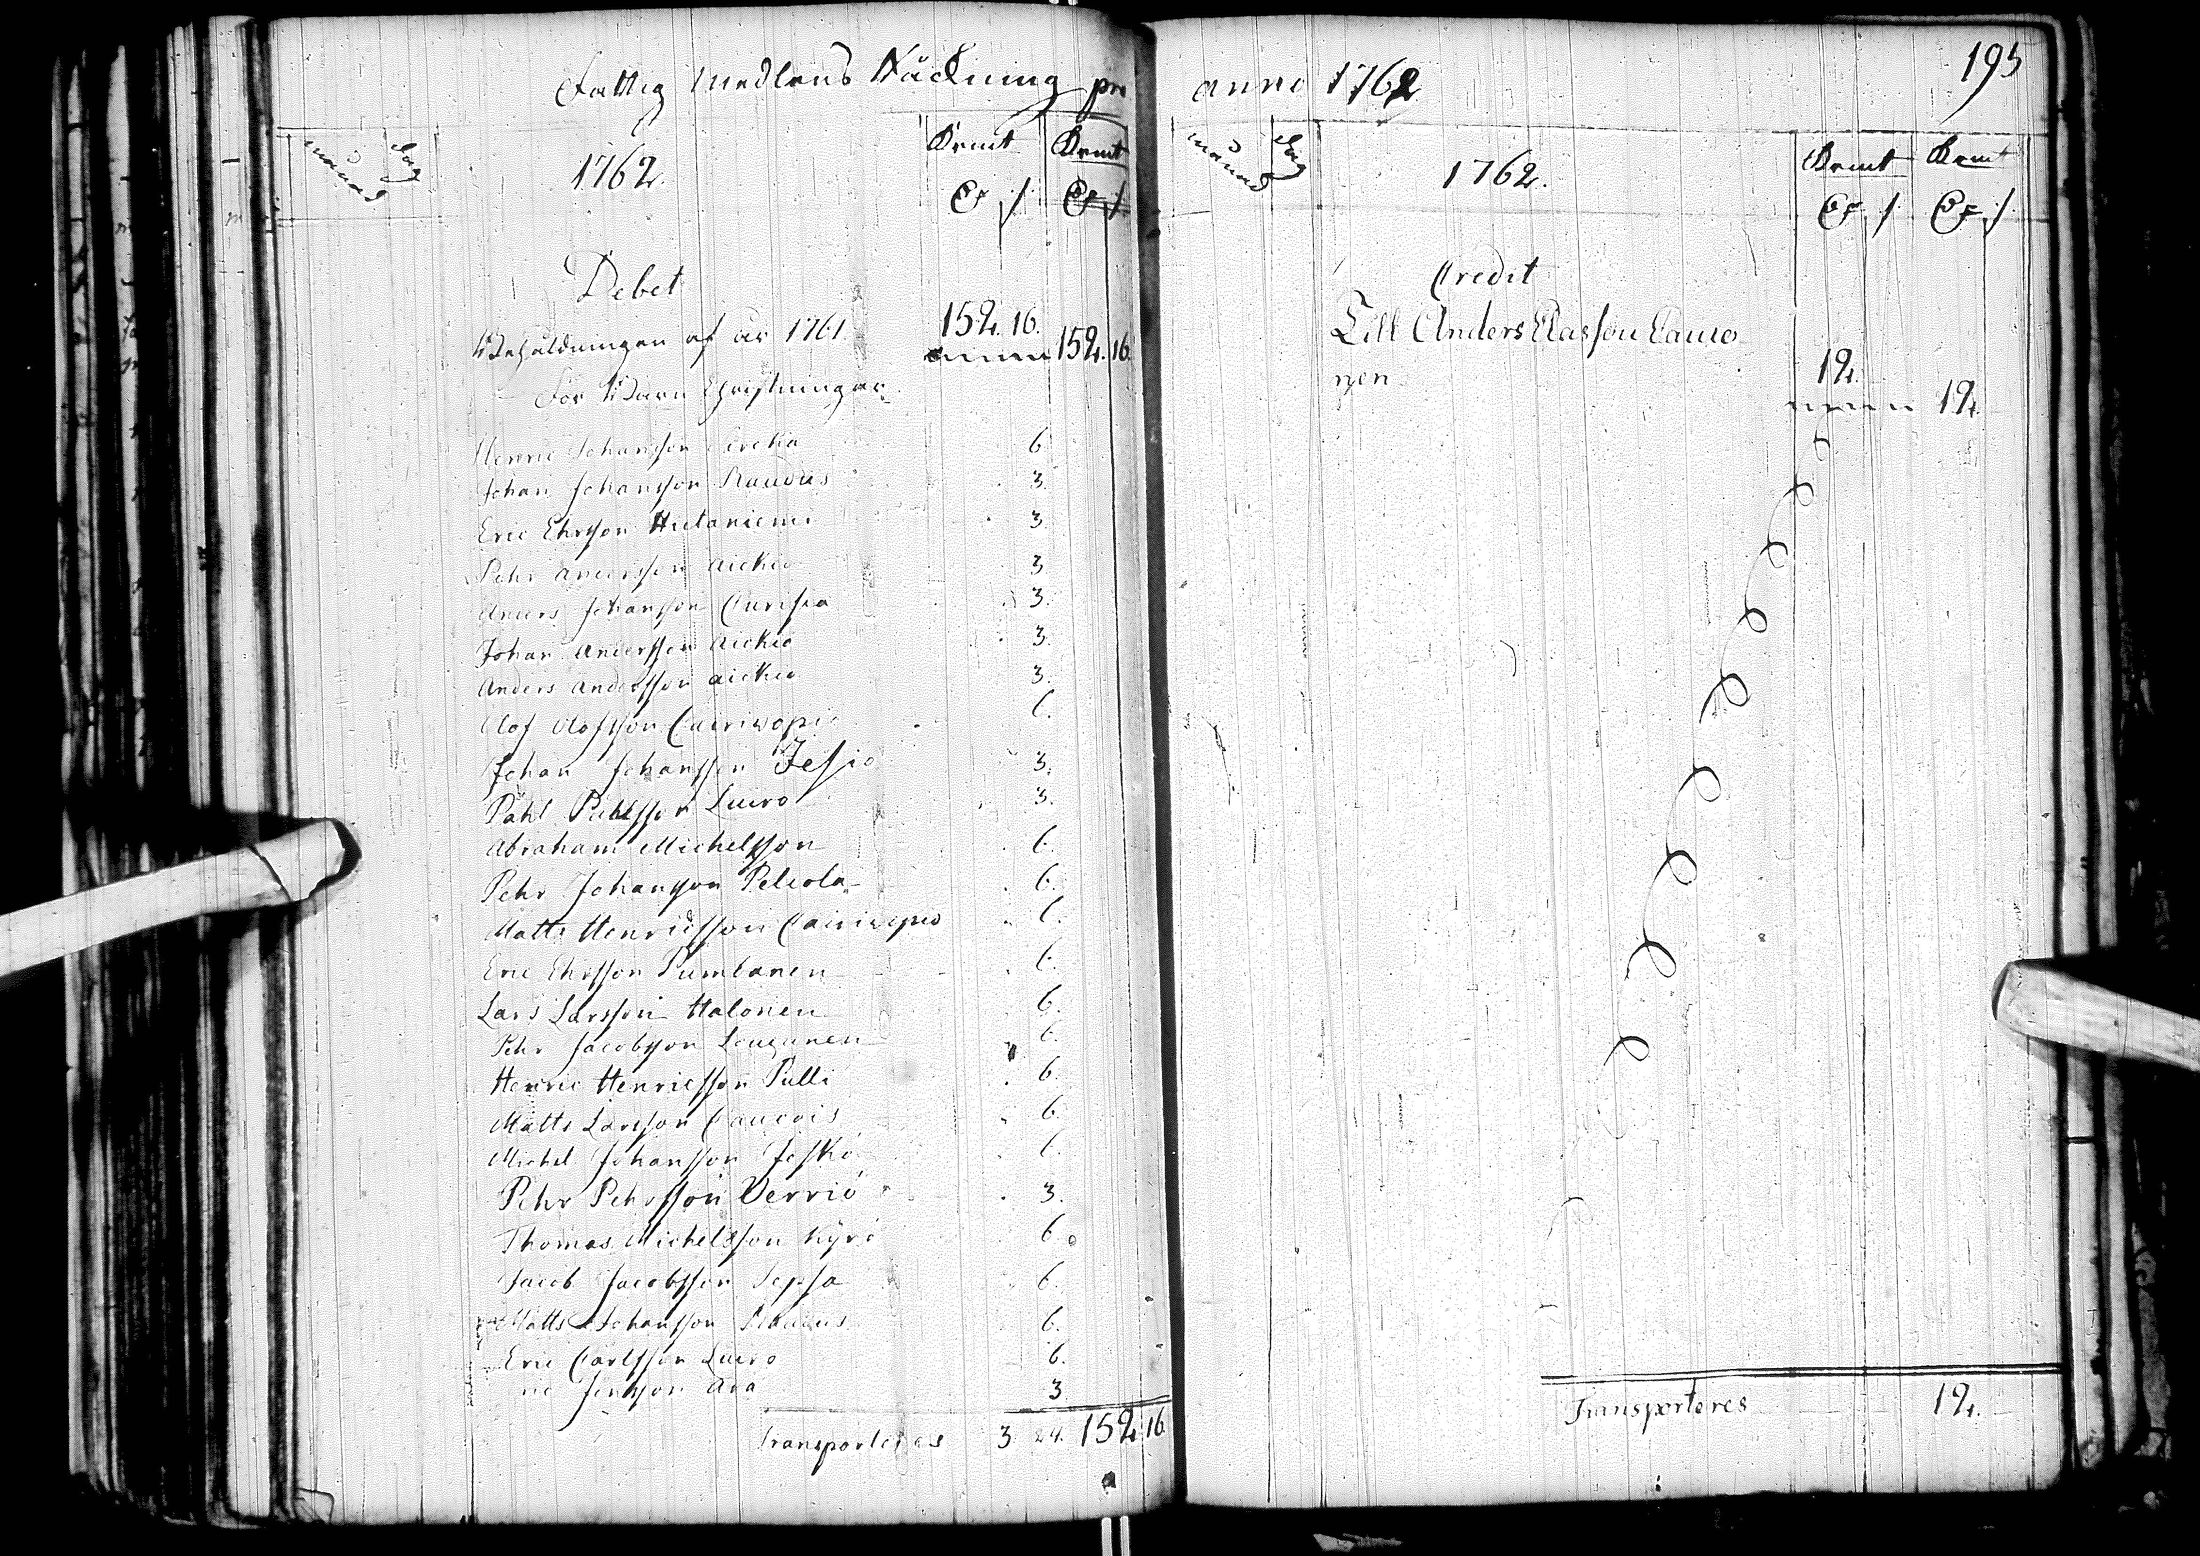 Fattig Medlens Räckning pro
månad Dag 1762. Krmt Krmt
Debet
Behåldningen af år 1761. 152. 16. 152. 16.
För Barn Christningar.
Henric Johansson 6
Johan Johansson Raudus 3.
Eric Ehrsson Hietaniemi 3
Pehr Andersson Aickio 3
Anders Johansson Curisia 3.
Johan Andersson Aickio 3.
Anders Andersson Aickio 3.
Olof Olofsson Cairiwopio 6.
Johan Johansson Jesio 3.
Påhl Påhlsson Luiro 3.
Abraham Michelsson 6.
Pehr Johansson Pelcola 6.
Matts Henricsson Cairiwopio 6.
Eric Ehrsson Pumbanen 6.
Lars Larsson Halonen 6.
Pehr Jacobsson 6.
Henric Henricsson Pulli 6.
Matts Larsson Caucois 6.
Michel Johansson Jesko 6.
Pehr Pehrsson Verrio 3.
Thomas Michelsson Kyrö 6.
Jacob Jacobsson Sepsa 6.
Matts Johansson Raudus 6.
Eric Carlsson Luiro 6.
Jönsson Ara 3
Transporteres 3 24. 152 16
anno 1762
195
månad Dag 1762. Krmt Krmt
Credit
Till Anders Classon
nen 12. 12.
Transporteres 12.